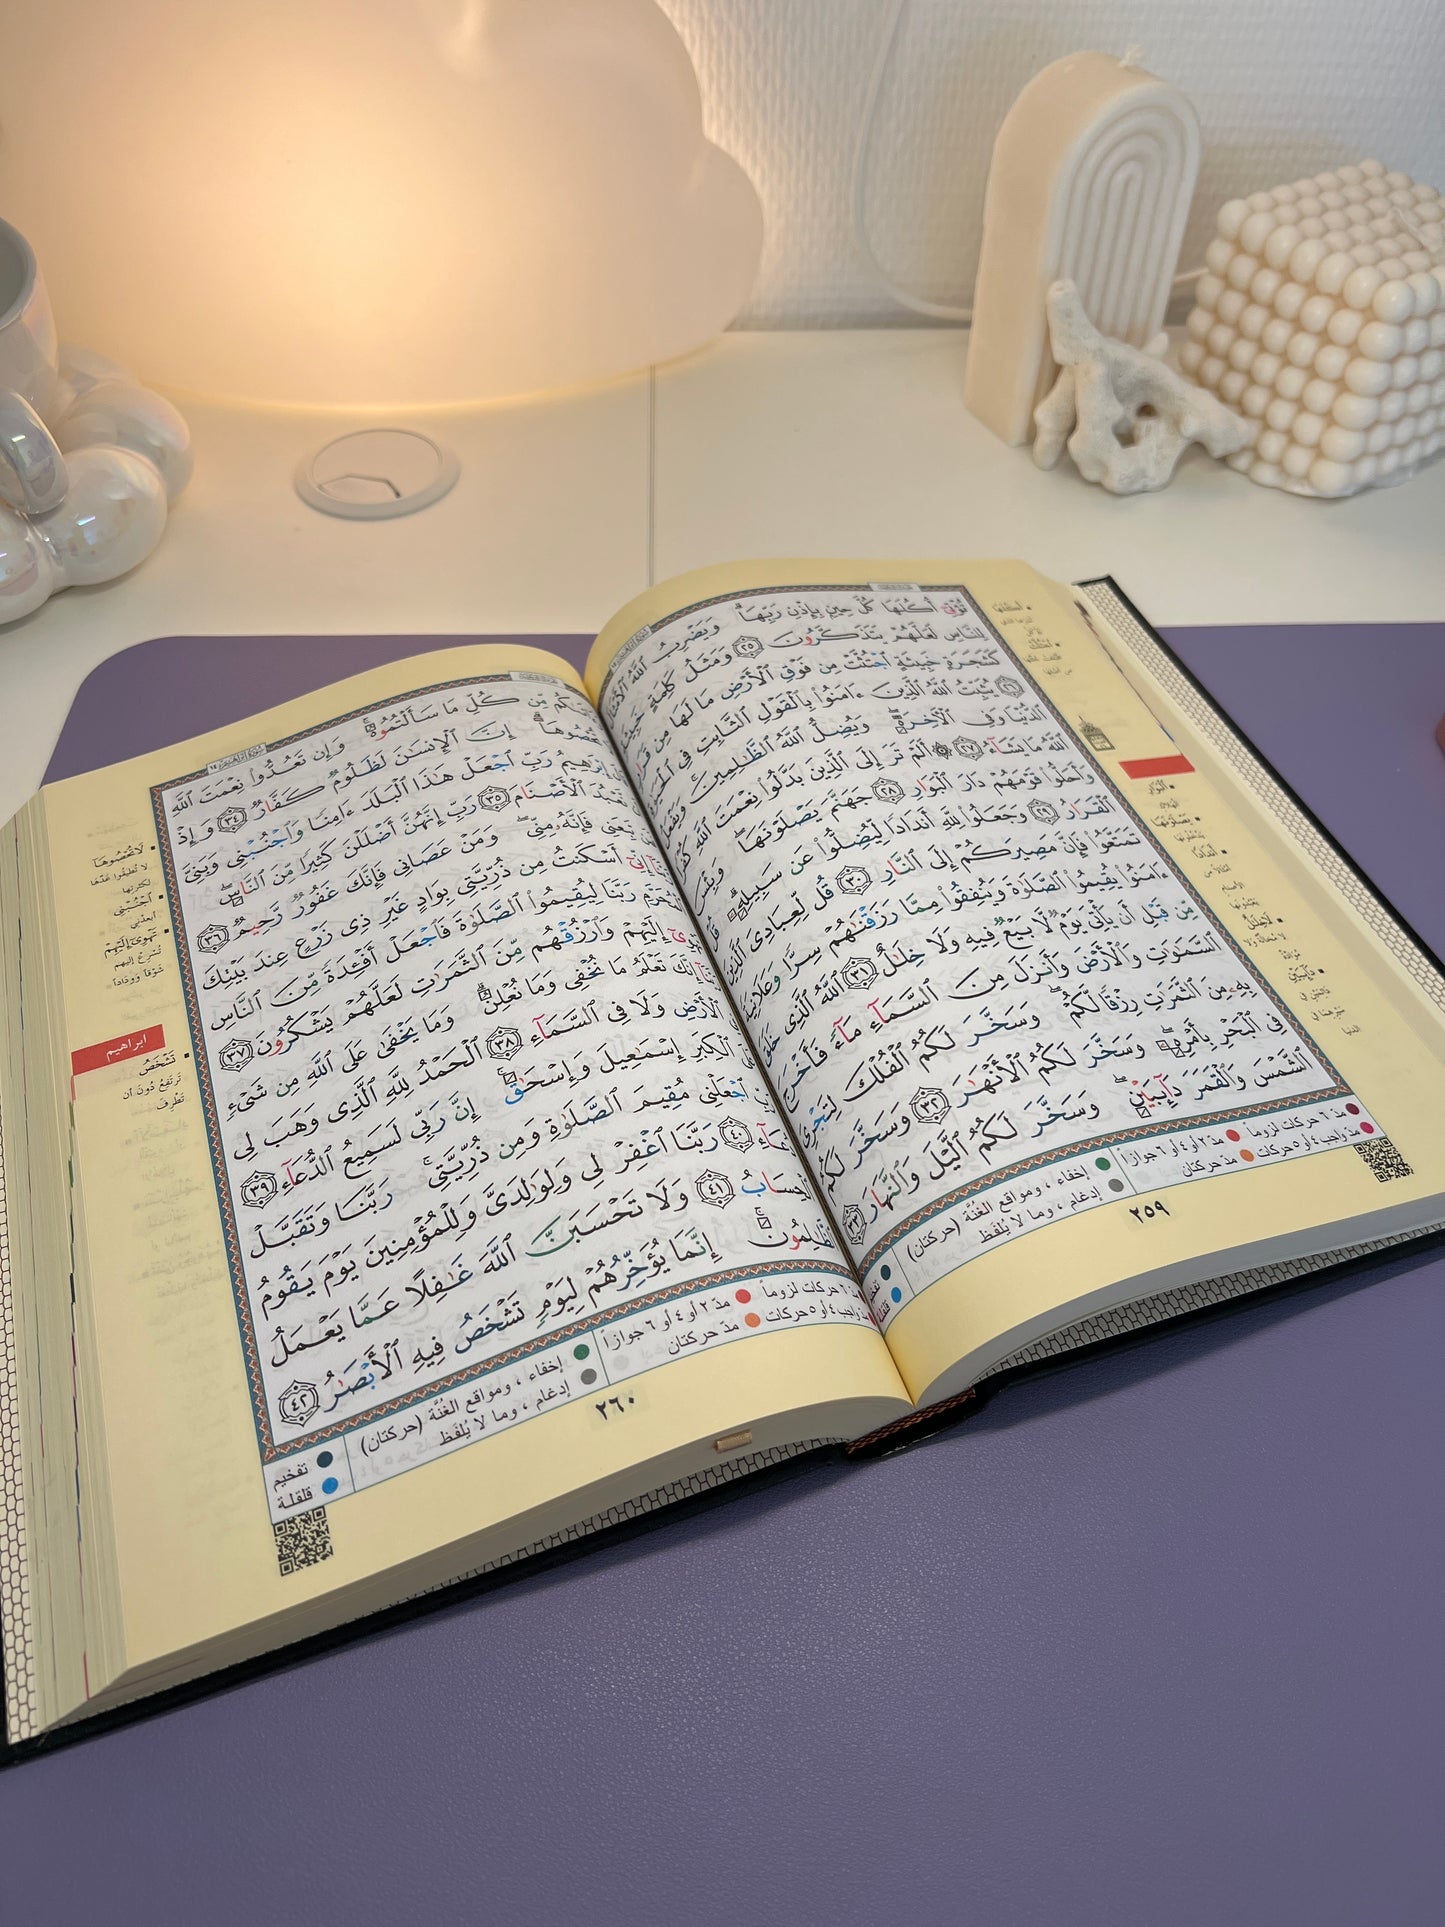 تُؤْتِىٓ أُكُلَهَا كُلَّ حِينٍۭ بِإِذْنِ رَبِّهَا ۗ وَيَضْرِبُ ٱللَّهُ ٱلْأَمْثَالَ
لِلنَّاسِ لَعَلَّهُمْ يَتَذَكَّرُونَ ٢٥ وَمَثَلُ كَلِمَةٍ خَبِيثَةٍ
كَشَجَرَةٍ خَبِيثَةٍ ٱجْتُثَّتْ مِن فَوْقِ ٱلْأَرْضِ مَا لَهَا مِن قَرَارٍ
٢٦ يُثَبِّتُ ٱللَّهُ ٱلَّذِينَ ءَامَنُوا۟ بِٱلْقَوْلِ ٱلثَّابِتِ فِى ٱلْحَيَوٰةِ
ٱلدُّنْيَا وَفِى ٱلْأَخِرَةِ ۖ وَيُضِلُّ ٱللَّهُ ٱلظَّٰلِمِينَ ۚ وَيَفْعَلُ
ٱللَّهُ مَا يَشَآءُ ٢٧ ۞ أَلَمْ تَرَ إِلَى ٱلَّذِينَ بَدَّلُوا۟ نِعْمَتَ ٱللَّهِ كُفْرًا
وَأَحَلُّوا۟ قَوْمَهُمْ دَارَ ٱلْبَوَارِ ٢٨ جَهَنَّمَ يَصْلَوْنَهَا ۖ وَبِئْسَ
ٱلْقَرَارُ ٢٩ وَجَعَلُوا۟ لِلَّهِ أَندَادًا لِّيُضِلُّوا۟ عَن سَبِيلِهِۦ ۗ قُلْ
تَمَتَّعُوا۟ فَإِنَّ مَصِيرَكُمْ إِلَى ٱلنَّارِ ٣٠ قُل لِّعِبَادِىَ ٱلَّذِينَ
ءَامَنُوا۟ يُقِيمُوا۟ ٱلصَّلَوٰةَ وَيُنفِقُوا۟ مِمَّا رَزَقْنَٰهُمْ سِرًّا وَعَلَانِيَةً
مِّن قَبْلِ أَن يَأْتِىَ يَوْمٌ لَّا بَيْعٌ فِيهِ وَلَا خِلَٰلٌ ٣١ ٱللَّهُ ٱلَّذِى خَلَقَ
ٱلسَّمَٰوَٰتِ وَٱلْأَرْضَ وَأَنزَلَ مِنَ ٱلسَّمَآءِ مَآءً فَأَخْرَجَ
بِهِۦ مِنَ ٱلثَّمَرَٰتِ رِزْقًا لَّكُمْ ۖ وَسَخَّرَ لَكُمُ ٱلْفُلْكَ لِتَجْرِىَ
فِى ٱلْبَحْرِ بِأَمْرِهِۦ ۖ وَسَخَّرَ لَكُمُ ٱلْأَنْهَٰرَ ٣٢ وَسَخَّرَ لَكُمُ
ٱلشَّمْسَ وَٱلْقَمَرَ دَآئِبَيْنِ ۖ وَسَخَّرَ لَكُمُ ٱلَّيْلَ وَٱلنَّهَارَ ٣٣
مدّ ٦ حركات لزوماً مدّ ٢ أو ٤ أو ٦ جوازاً
مدّ واجب ٤ أو ٥ حركات مدّ حركتان
إخفاء ، ومواقع الغُنَّة (حركتان)
إدغام ، وما لا يُلفَظ
٢٥٩
مِّن كُلِّ مَا سَأَلْتُمُوهُ ۚ وَإِن تَعُدُّوا۟ نِعْمَتَ ٱللَّهِ
تُحْصُوهَآ ۗ إِنَّ ٱلْإِنسَٰنَ لَظَلُومٌ كَفَّارٌ ٣٤ وَإِذْ
إِبْرَٰهِيمُ رَبِّ ٱجْعَلْ هَٰذَا ٱلْبَلَدَ ءَامِنًا وَٱجْنُبْنِى وَبَنِىَّ
نَّعْبُدَ ٱلْأَصْنَامَ ٣٥ رَبِّ إِنَّهُنَّ أَضْلَلْنَ كَثِيرًا مِّنَ ٱلنَّاسِ ۖ
تَبِعَنِى فَإِنَّهُۥ مِنِّى ۖ وَمَنْ عَصَانِى فَإِنَّكَ غَفُورٌ رَّحِيمٌ ٣٦
إِنِّىٓ أَسْكَنتُ مِن ذُرِّيَّتِى بِوَادٍ غَيْرِ ذِى زَرْعٍ عِندَ بَيْتِكَ
ٱلْمُحَرَّمِ رَبَّنَا لِيُقِيمُوا۟ ٱلصَّلَوٰةَ فَٱجْعَلْ أَفْـِٔدَةً مِّنَ ٱلنَّاسِ
تَهْوِىٓ إِلَيْهِمْ وَٱرْزُقْهُم مِّنَ ٱلثَّمَرَٰتِ لَعَلَّهُمْ يَشْكُرُونَ ٣٧
إِنَّكَ تَعْلَمُ مَا نُخْفِى وَمَا نُعْلِنُ ۗ وَمَا يَخْفَىٰ عَلَى ٱللَّهِ مِن شَىْءٍ
فِى ٱلْأَرْضِ وَلَا فِى ٱلسَّمَآءِ ٣٨ ٱلْحَمْدُ لِلَّهِ ٱلَّذِى وَهَبَ لِى
عَلَى ٱلْكِبَرِ إِسْمَٰعِيلَ وَإِسْحَٰقَ ۚ إِنَّ رَبِّى لَسَمِيعُ ٱلدُّعَآءِ ٣٩
ٱجْعَلْنِى مُقِيمَ ٱلصَّلَوٰةِ وَمِن ذُرِّيَّتِى ۚ رَبَّنَا وَتَقَبَّلْ
دُعَآءِ ٤٠ رَبَّنَا ٱغْفِرْ لِى وَلِوَٰلِدَىَّ وَلِلْمُؤْمِنِينَ يَوْمَ يَقُومُ
ٱلْحِسَابُ ٤١ وَلَا تَحْسَبَنَّ ٱللَّهَ غَٰفِلًا عَمَّا يَعْمَلُ
ٱلظَّٰلِمُونَ ۚ إِنَّمَا يُؤَخِّرُهُمْ لِيَوْمٍ تَشْخَصُ فِيهِ ٱلْأَبْصَٰرُ ٤٢
لَا تُحْصُوهَا
لا تُطيقوا عَدَّها
لكثرتها
ٱجْنُبْنِى
أبعدني
تَهْوِى إِلَيْهِمْ
تُسْرِعُ إليهم
شَوْقاً وَوِدَاداً
ابراهيم
تَشْخَصُ
تَرتَفِعُ دُونَ أن
تَطْرِفَ
٦ حركات لزوماً مدّ ٢ أو ٤ أو ٦ جوازاً
مدّ واجب ٤ أو ٥ حركات مدّ حركتان
إخفاء ، ومواقع الغُنَّة (حركتان)
إدغام ، وما لا يُلفَظ
تفخيم
قلقلة
٢٦٠